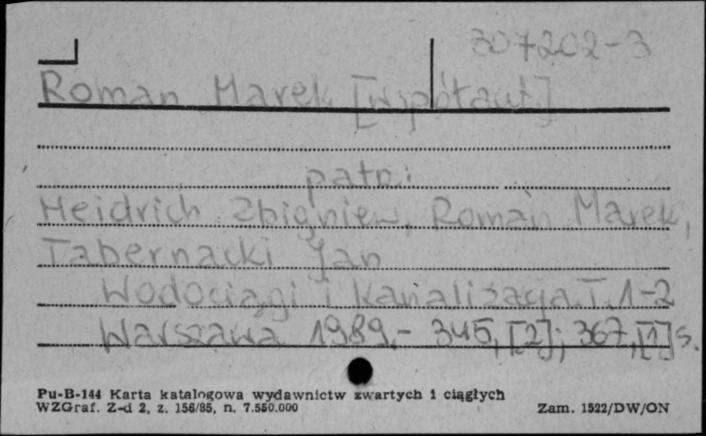 307202-3
Roman Marek [współaut]
patrz:
Heidrich Zbigniew, Roman Marek,
Tabernacki Jan
Wodociągi i kanalizacja. T. 1-2
Warszawa 1989.- 345, [2]; 367, [1] s.
Pu-B-144 Karta katalogowa wydawnictw zwartych i ciągłych
WZGraf. Z-d 2, z. 156/85, n. 7.550.000
Zam. 1522/DW/ON